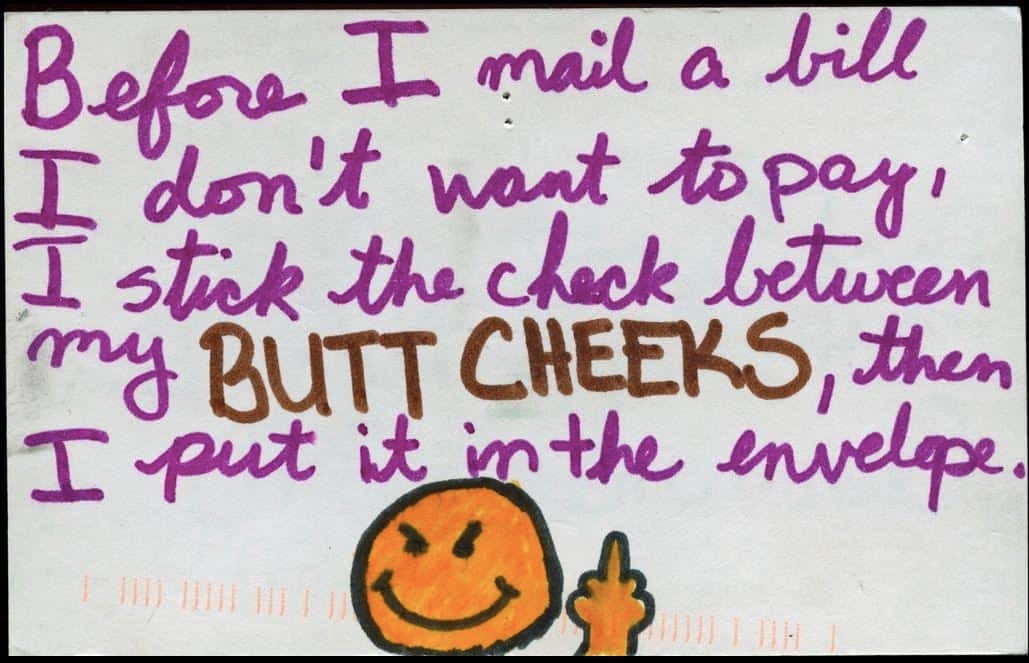 Before I mail a bill
I don't want to pay,
I stick the check between
my BUTT CHEEKS, then
I put it in the envelope.